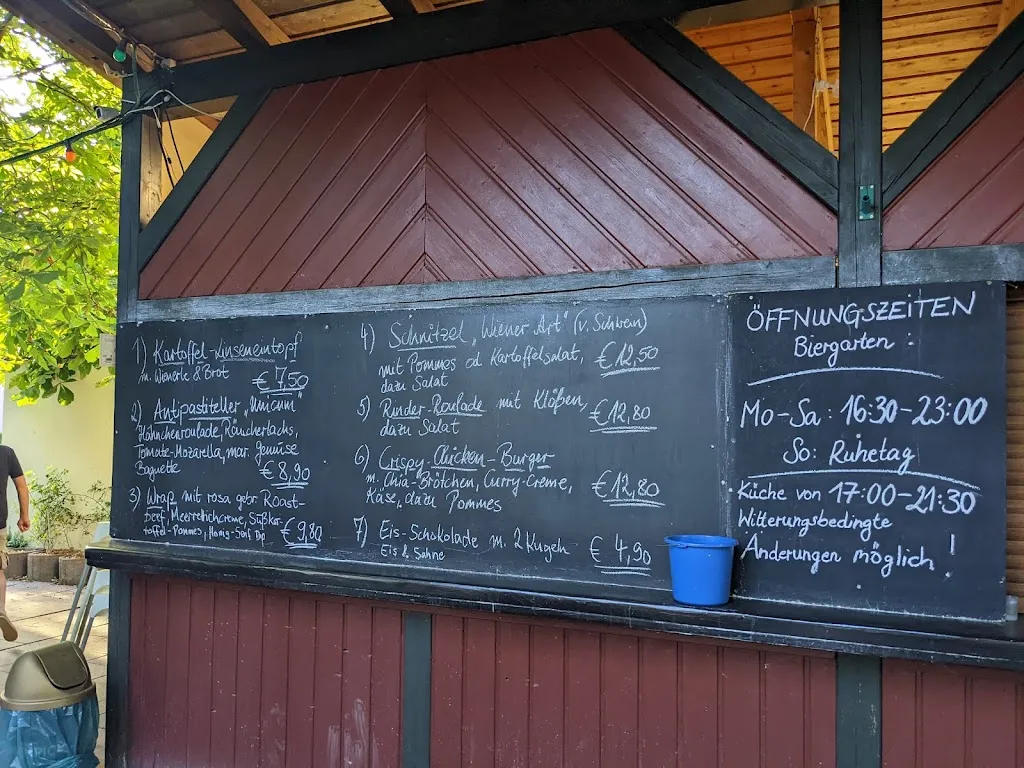 1) Kartoffel-Linseneintopf
m. Wienerle & Brot € 7,50
2) Antipastiteller "Unicum"
Hähnchenroulade, Räucherlachs,
Tomate-Mozarella, mar. Gemüse
Baguette € 8,90
3) Wrap mit rosa gebr. Roast-
beef, Meerrettichcreme, Süßkar-
toffel-Pommes, Honig-Senf Dip € 9,80
4) Schnitzel "Wiener Art" (v. Schwein)
mit Pommes od Kartoffelsalat, € 12,50
dazu Salat
5) Rinder-Roulade mit Klößen, € 12,80
dazu Salat
6) Crispy-Chicken-Burger
m. Chia-Brötchen, Curry-Creme, € 12,80
Käse, dazu Pommes
7) Eis-Schokolade m. 2 Kugeln € 4,90
Eis & Sahne
ÖFFNUNGSZEITEN
Biergarten:
Mo-Sa: 16:30-23:00
So: Ruhetag
Küche von 17:00-21:30
Witterungsbedingte
Änderungen möglich!